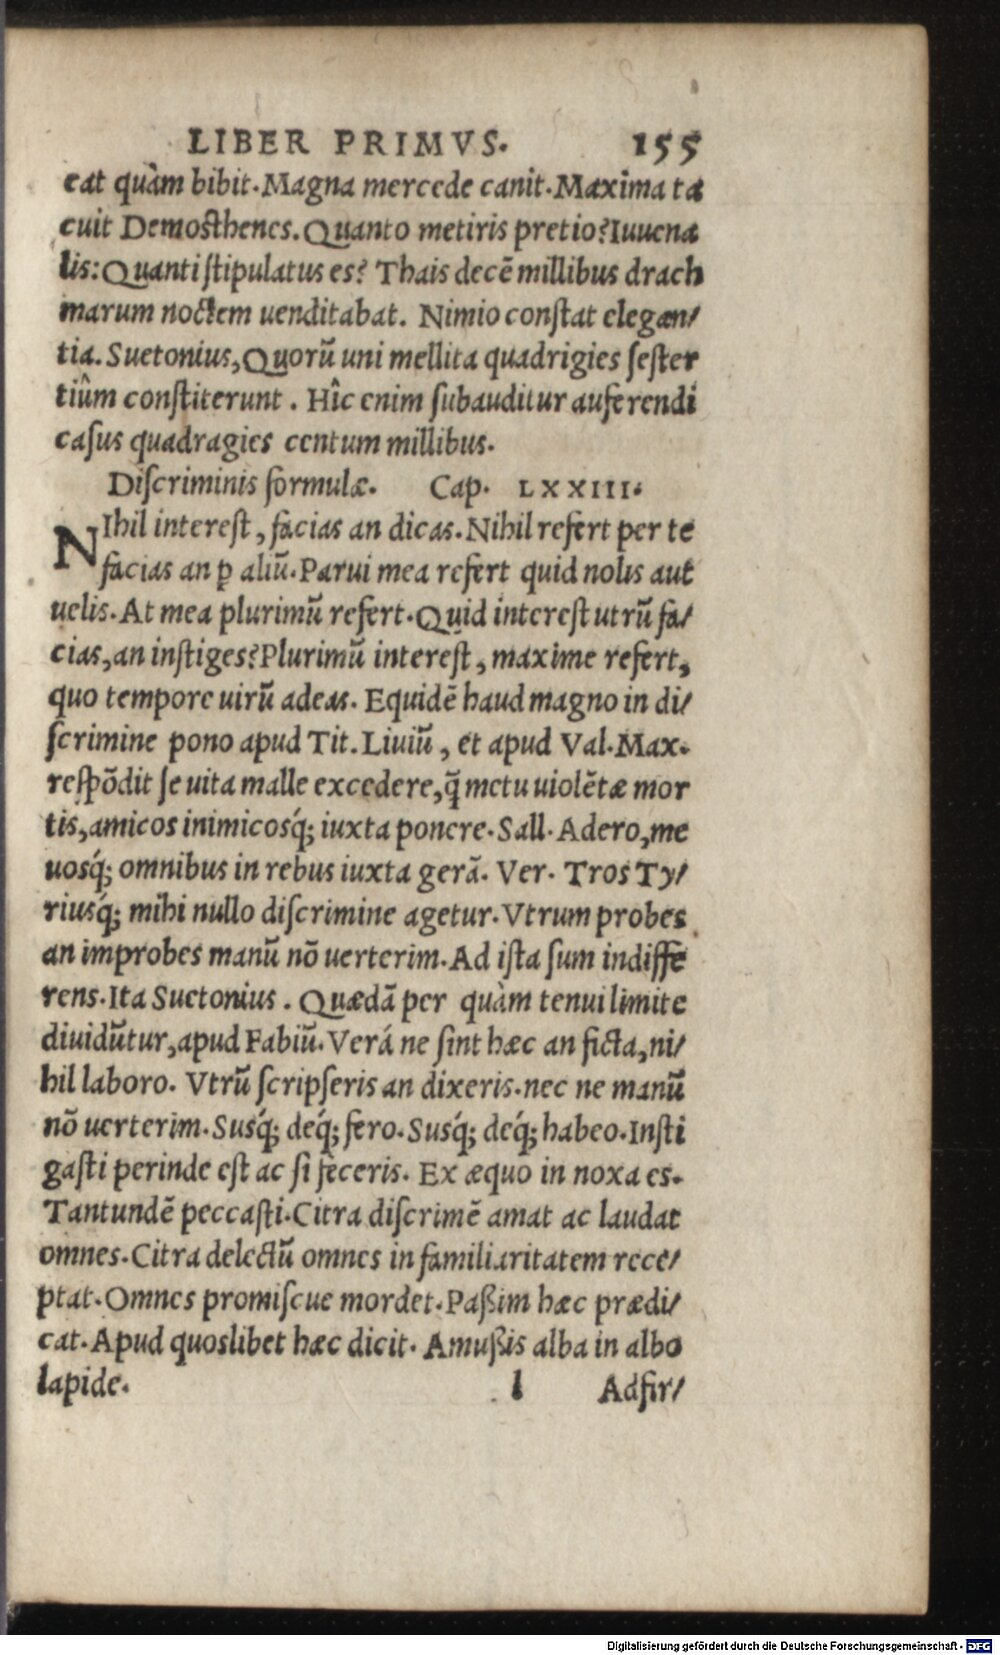 LIBER PRIMVS. 155
eat quàm bibit. Magna mercede canit. Maxima ta
cuit Demosthenes. Quanto metiris pretio? Iuuena
lis: Quanti stipulatus es? Thais decē millibus drach
marum noctem uenditabat. Nimio constat elegan/
tia. Suetonius, Quorū uni mellita quadrigies sester
tiûm constiterunt. Hîc enim subauditur auferendi
casus quadragies centum millibus.
Discriminis formulæ. Cap. LXXIII.
NIhil interest, facias an dicas. Nihil refert per te
facias an ꝑ aliū. Parui mea refert quid nolis aut
uelis. At mea plurimū refert. Quid interest utrū fa/
cias, an instiges? Plurimū interest, maxime refert,
quo tempore uirū adeas. Equidē haud magno in di/
scrimine pono apud Tit. Liuiū, et apud Val. Max.
respōdit se uita malle excedere, q̄ metu uiolētæ mor
tis, amicos inimicosq́; iuxta ponere. Sall. Adero, me
uosq́; omnibus in rebus iuxta gerā. Ver. Tros Ty/
riusq́; mihi nullo discrimine agetur. Vtrum probes
an improbes manū nō uerterim. Ad ista sum indiffe
rens. Ita Suetonius. Quædā per quàm tenui limite
diuidūtur, apud Fabiū. Verá ne sint hæc an ficta, ni/
hil laboro. Vtrū scripseris an dixeris. nec ne manū
nō uerterim. Susq́; deq́; fero. Susq́; deq́; habeo. Insti
gasti perinde est ac si feceris. Ex æquo in noxa es.
Tantundē peccasti. Citra discrimē amat ac laudat
omnes. Citra delectū omnes in familiaritatem rece/
ptat. Omnes promiscue mordet. Paßim hæc prædi/
cat. Apud quoslibet hæc dicit. Amußis alba in albo
lapide. l Adfir/
Digitalisierung gefördert durch die Deutsche Forschungsgemeinschaft - DFG